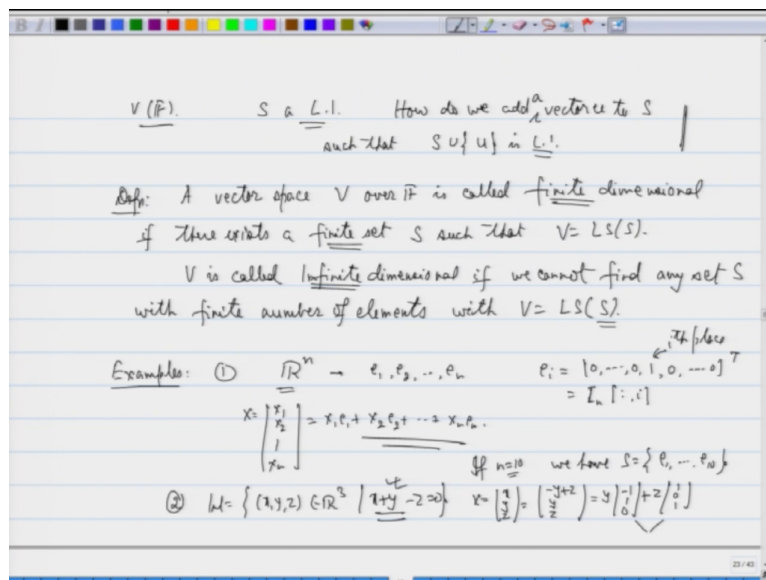 V(𝔽). S a L.I. How do we add a vector u to S
such that S∪{u} is L.I.
Defn: A vector space V over 𝔽 is called finite dimensional
if there exists a finite set S such that V = LS(S).
V is called Infinite dimensional if we cannot find any set S
with finite number of elements with V = LS(S).
ith place
Examples: ① ℝⁿ → e₁, e₂, .., eₙ eᵢ = [0, ..., 0, 1, 0, ... 0]ᵀ
= Iₙ[:, i]
X = [x₁ x₂ ⋮ xₙ] = x₁e₁ + x₂e₂ + ... + xₙeₙ.
If n=10 we have S = {e₁, ... e₁₀}.
② W = {(x,y,z) ∈ ℝ³ | x+y-z=0} X = (x y z) = (-y+z y z) = y[-1 1 0] + z[1 0 1]
23 / 43